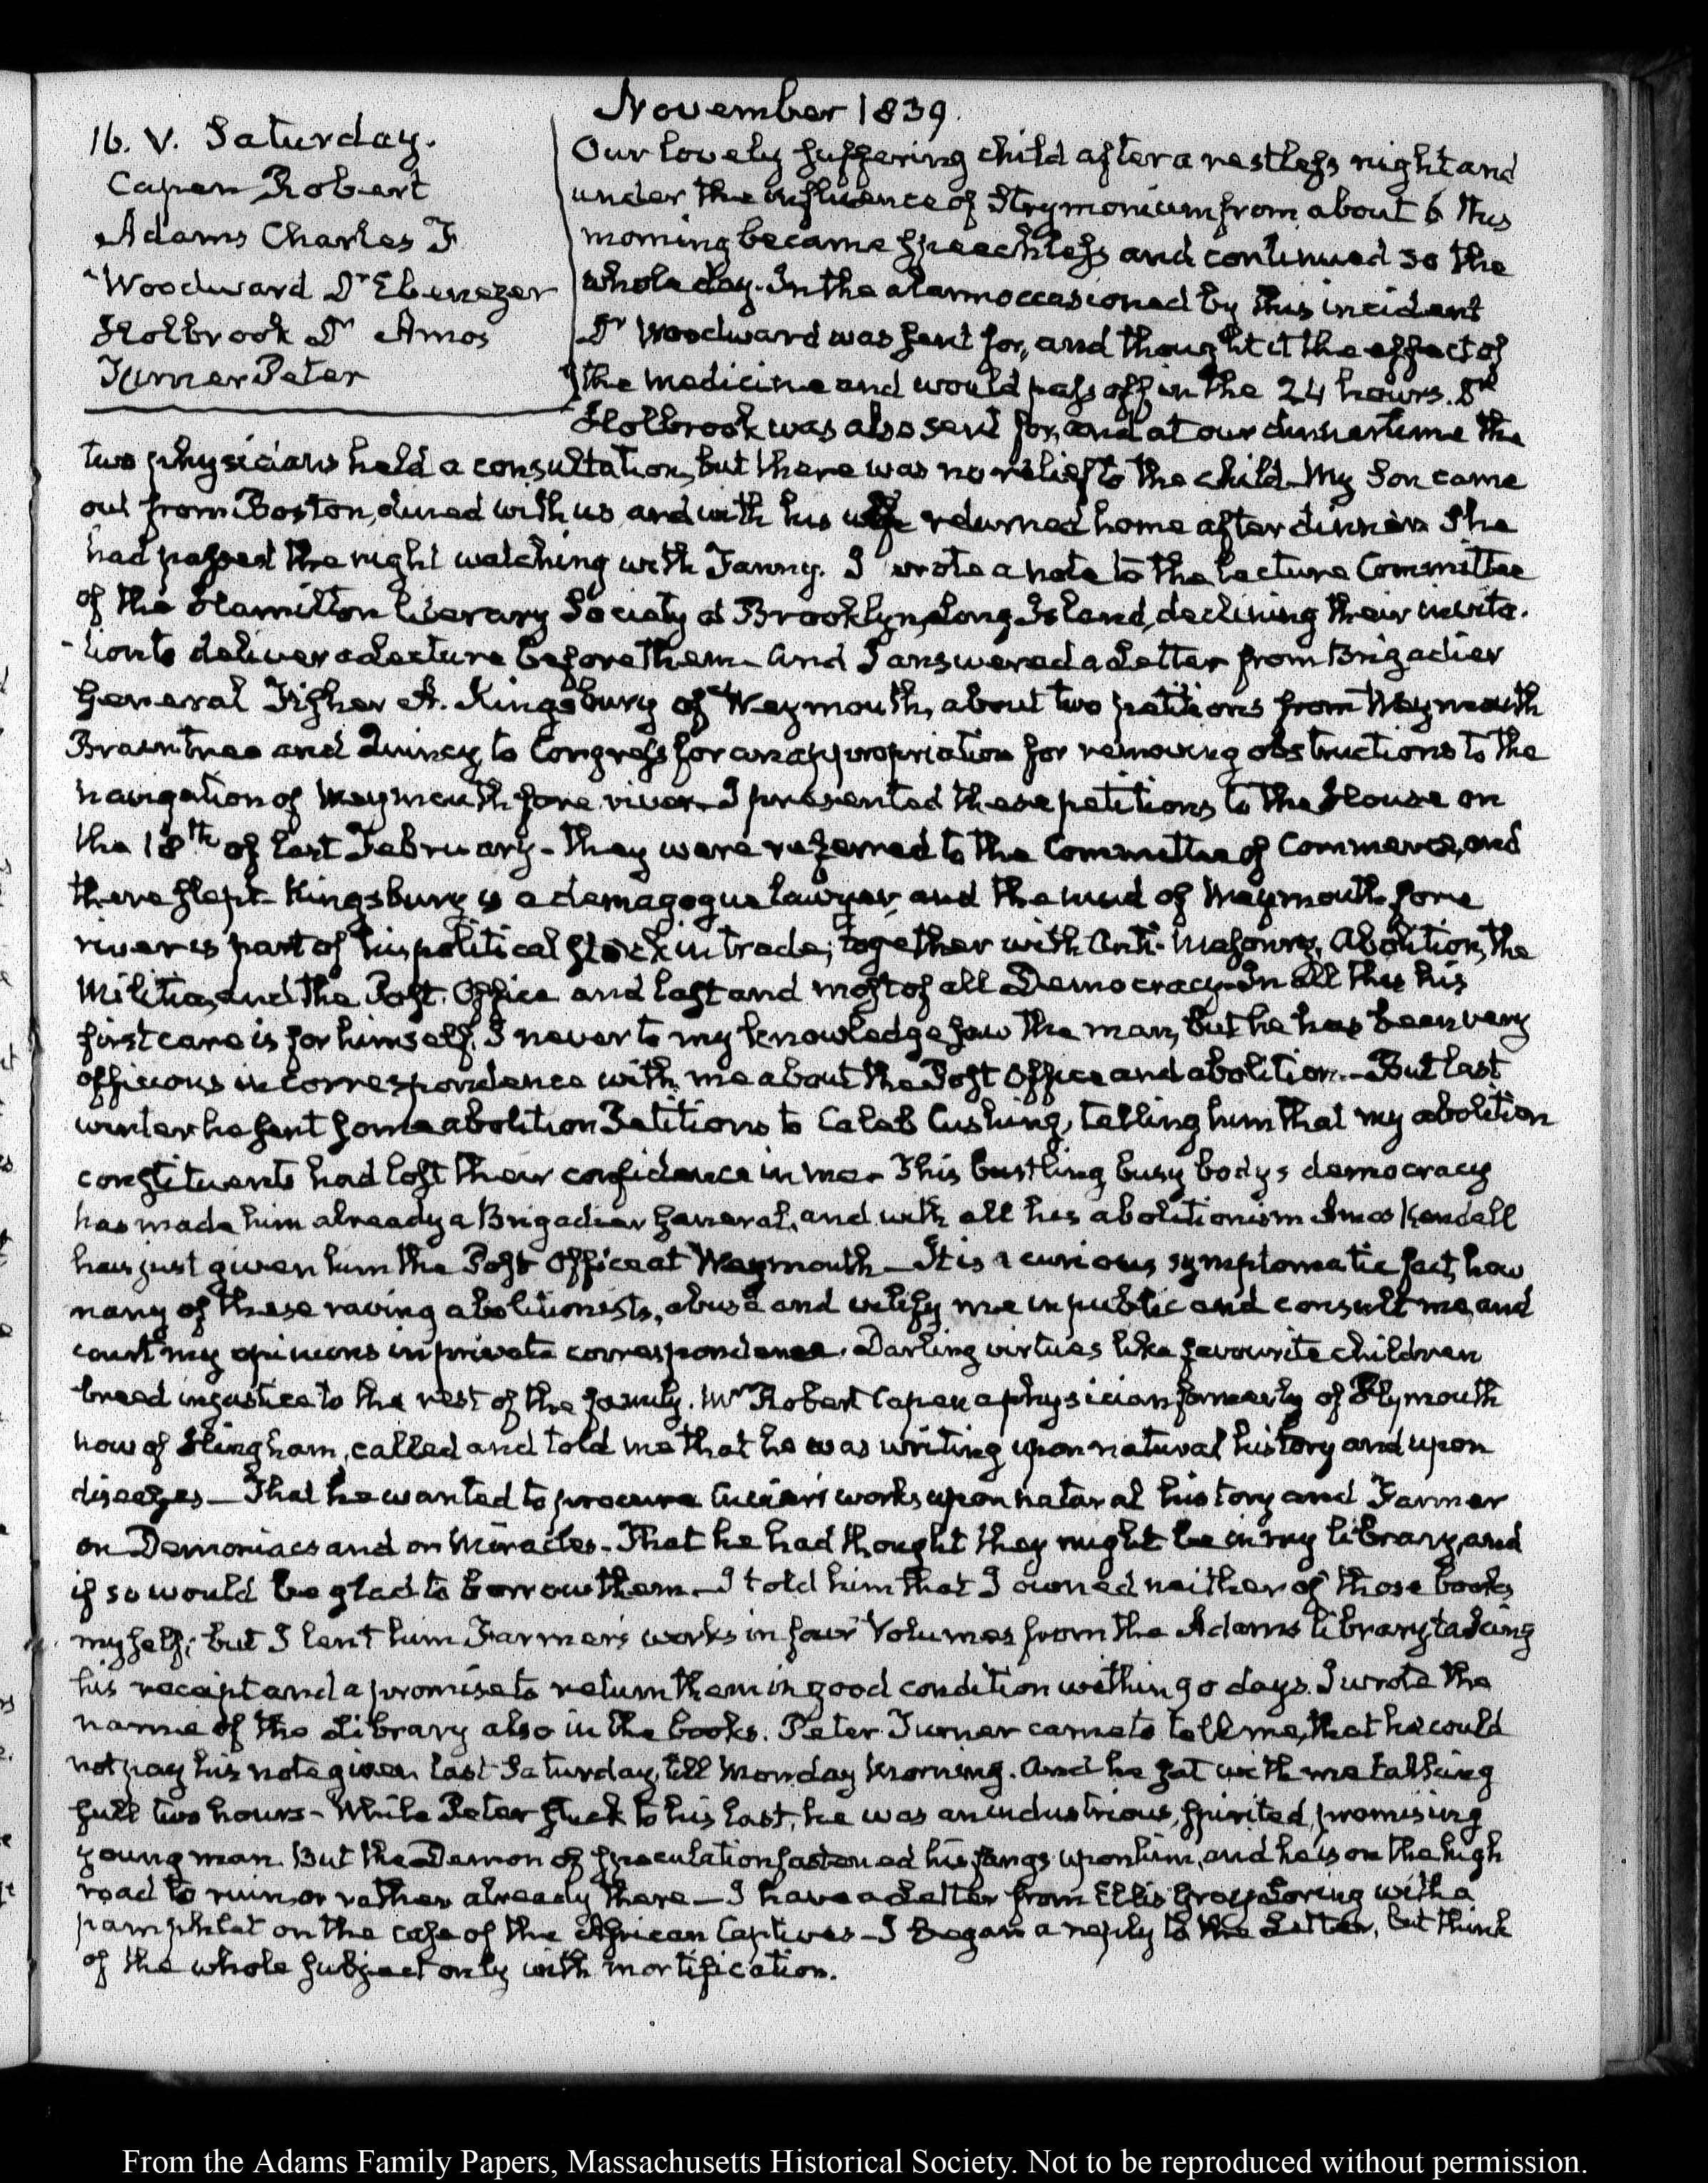 November 1839.
16. V. Saturday.
Capen Robert
Adams Charles F
Woodward Dr Ebenezer
Holbrook Dr Amos
Turner Peter
Our lovely suffering child after a restless night and
under the influence of Strymonium from about 6 this
morning became speechless and continued so the
whole day. In the alarm occasioned by this incident
Dr Woodward was sent for, and thought it the effect of
the medicine and would pass off in the 24 hours. Dr
Holbrook was also sent for, and at our dinner time the
two physicians held a consultation, but there was no relief to the child. My Son came
out from Boston, dined with us and with his wife returned home after dinner. She
had passed the night watching with Fanny. I wrote a note to the Lecture Committee
of the Hamilton literary Society at Brooklyn, Long Island, declining their invita-
-tion to deliver a Lecture before them. And I answered a Letter from Brigadier
General Fisher A. Kingsbury of Weymouth, about two petitions from Weymouth
Braintree and Quincy, to Congress for an appropriation for removing obstructions to the
navigation of Weymouth fore river. I presented these petitions to the House on
the 18th of last February - they were referred to the Committee of Commerce, and
there slept. Kingsbury is a demagogue lawyer, and the mud of Weymouth fore
river is part of his political stock in trade; together with Anti-Masonry, Abolition, the
Militia, and the Post-Office and last and most of all Democracy. In all this his
first care is for himself. I never to my knowledge saw the man, but he has been very
officious in correspondence with me about the Post Office and abolition. - But last
winter he sent some abolition Petitions to Caleb Cushing, telling him that my abolition
constituents had lost their confidence in me - This bustling busy bodys democracy
has made him already a Brigadier General, and with all his abolitionism Amos Kendall
has just given him the Post Office at Weymouth - It is a curious symptomatic fact, how
many of these raving abolitionists, abuse and vilify me in public and consult me, and
court my opinions in private correspondence. Darling virtues like favourite children
breed injustice to the rest of the family. Mr Robert Capen a physician formerly of Plymouth
now of Hingham, called and told me that he was writing upon natural history and upon
diseases - That he wanted to procure Cuvier's works upon natural history and Farmer
on Demoniacs and on Miracles - That he had thought they might be in my library, and
if so would be glad to borrow them - I told him that I owned neither of those books
myself; but I lent him Farmer's works in four Volumes from the Adams library taking
his receipt and a promise to return them in good condition within 90 days. I wrote the
name of the Library also in the books. Peter Turner came to tell me, that he could
not pay his note given last Saturday, till Monday Morning. And he sat with me talking
full two hours - While Peter stuck to his last, he was an industrious, spirited, promising
young man. But the Demon of speculation fastened his fangs upon him, and he is on the high
road to ruin, or rather already there - I have a Letter from Ellis Gray Loring with a
pamphlet on the case of the African Captives - I began a reply to the Letter, but think
of the whole subject only with mortification.
From the Adams Family Papers, Massachusetts Historical Society. Not to be reproduced without permission.